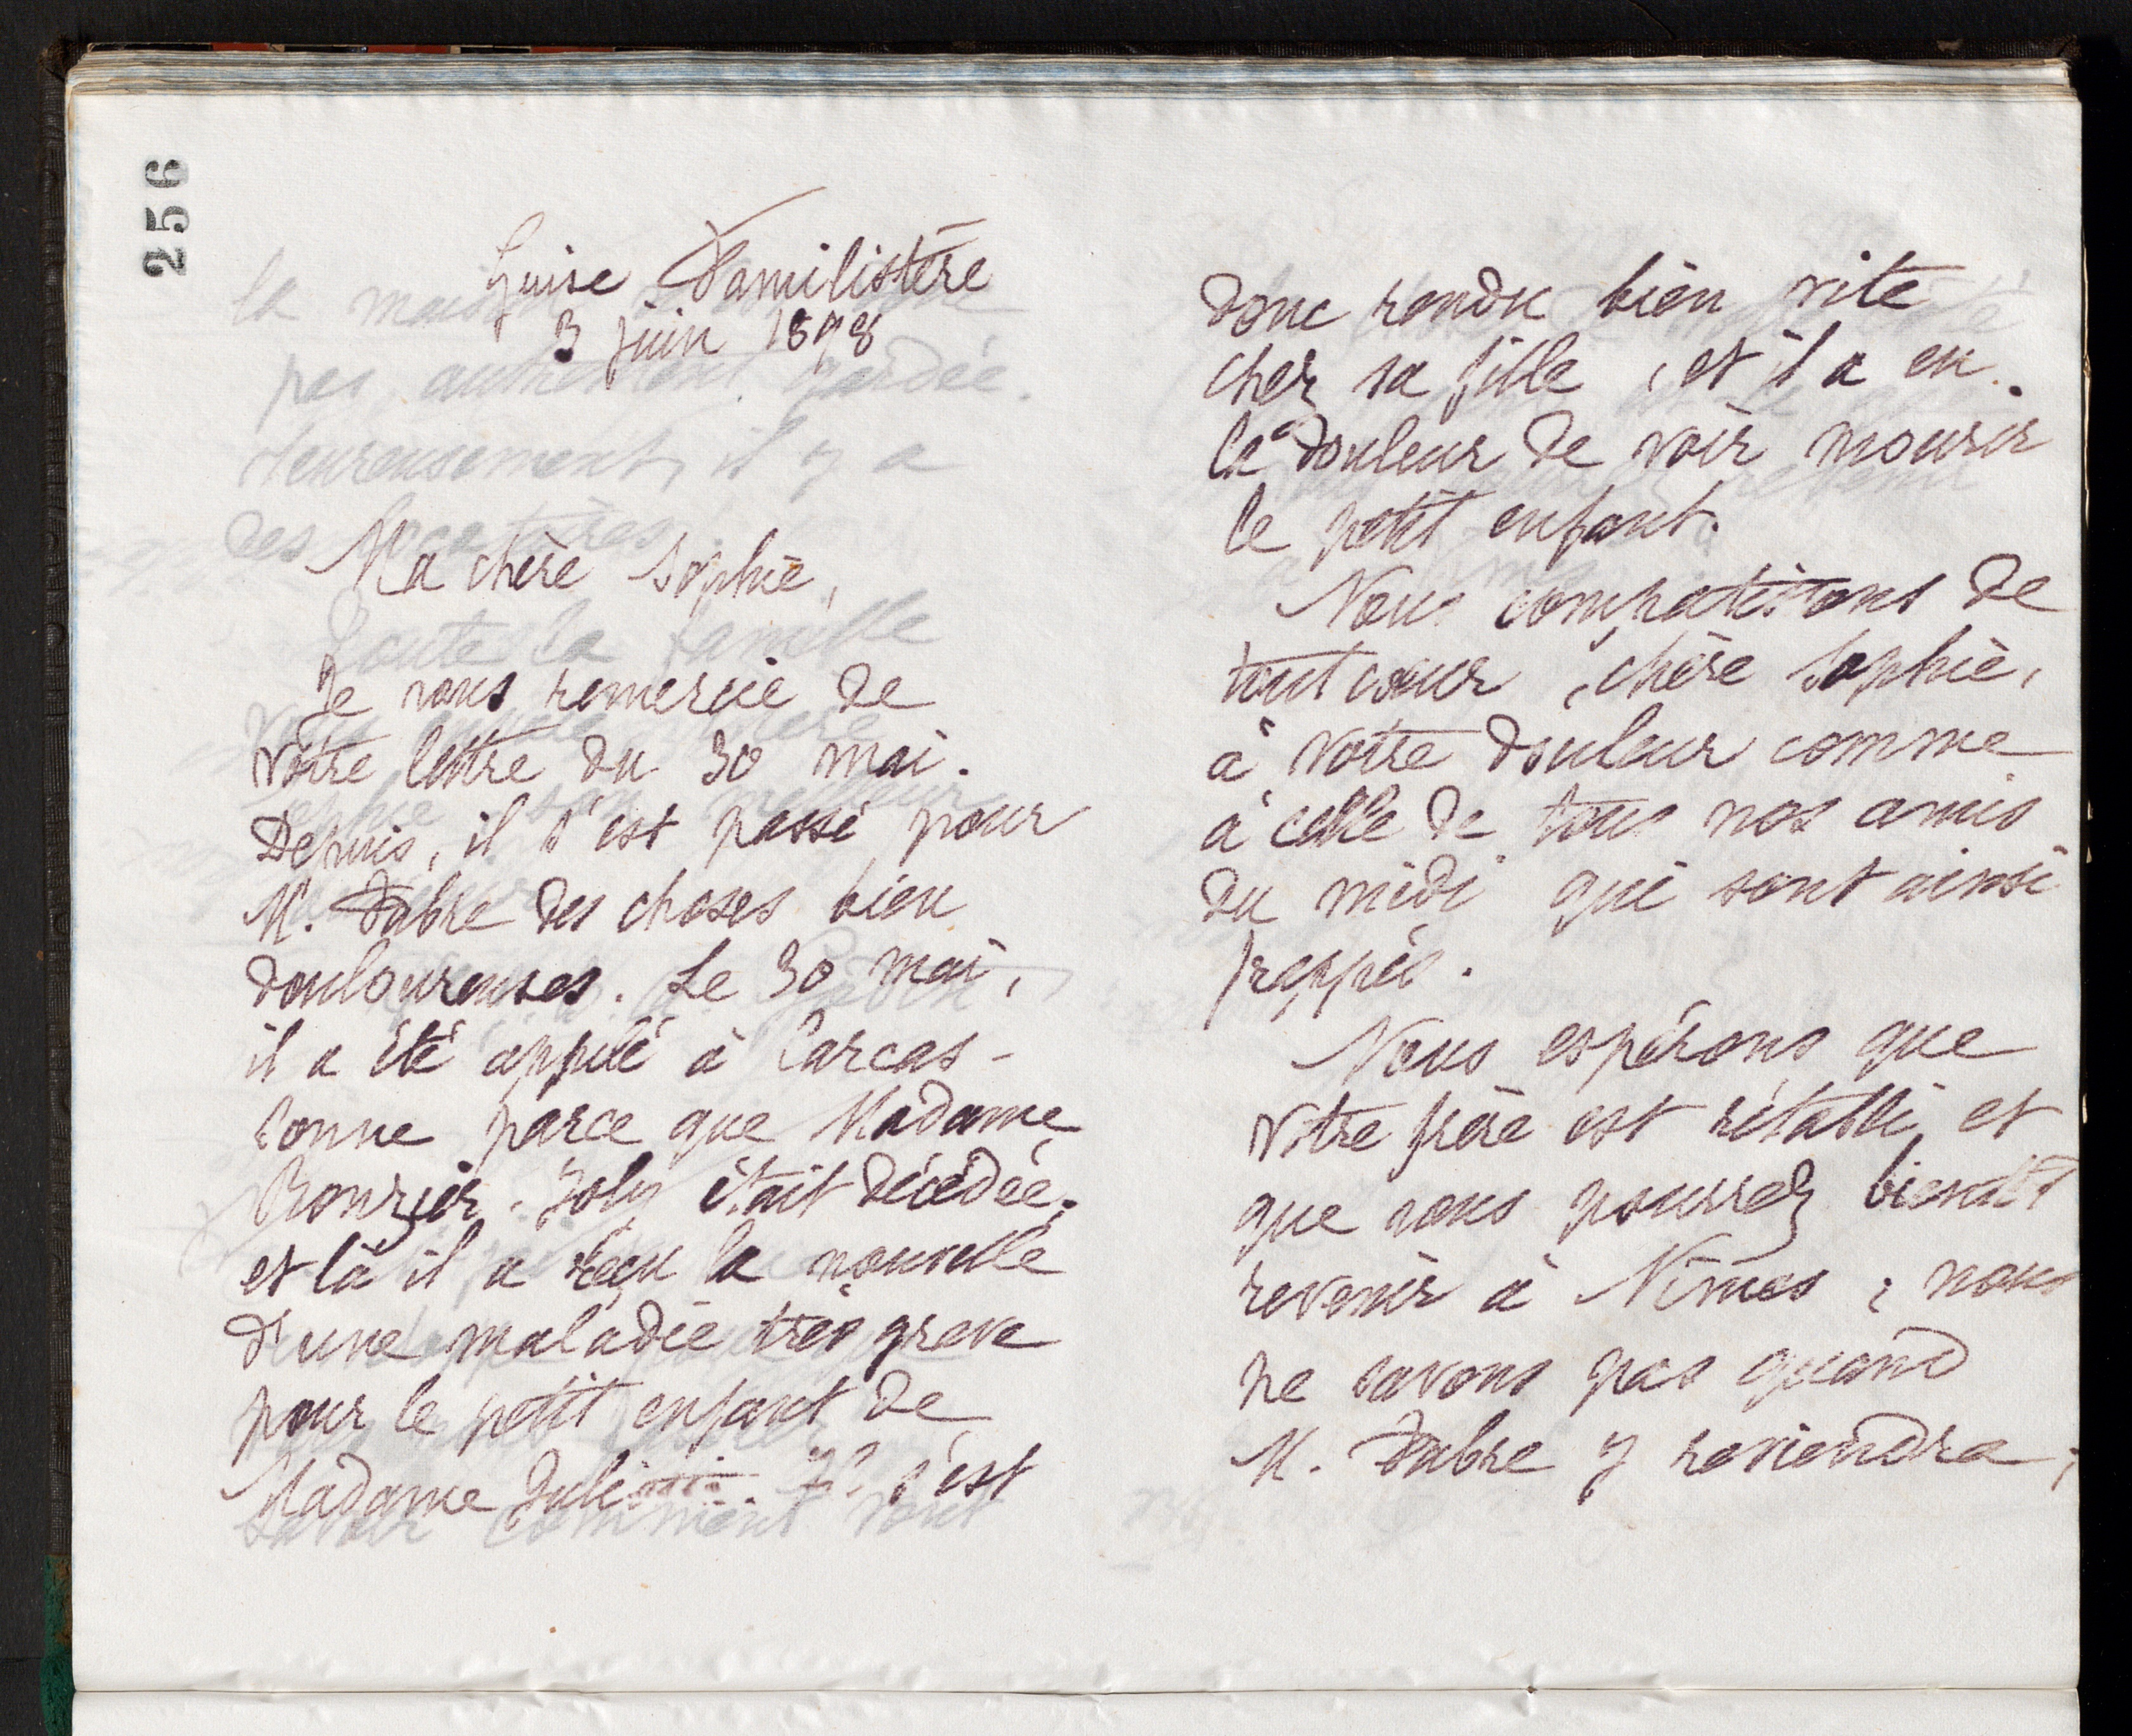 256
Guise Familistère
3 juin 1898
Ma chère Sophie,
Je vous remercie de
votre lettre du 30 mai.
Depuis, il s'est passé pour
M. Fabre des choses bien
douloureuses. Le 30 mai,
il a été appelé à Carcas-
sonne parce que Madame
Rouzier-Joly était décédée;
et là il a reçu la nouvelle
d'une maladie très grave
pour le petit enfant de
Madame Il s'est
donc rendu bien vite
chez sa fille, et il a eu
la douleur de voir mourir
le petit enfant.
Nous compatissons de
tout cœur, chère Sophie,
à votre douleur comme
à celle de tous nos amis
du midi qui sont ainsi
frappés.
Nous espérons que
votre frère est rétabli et
que vous pourrez bientôt
revenir à Nîmes ; nous
ne savons pas quand
M. Fabre y reviendra ;